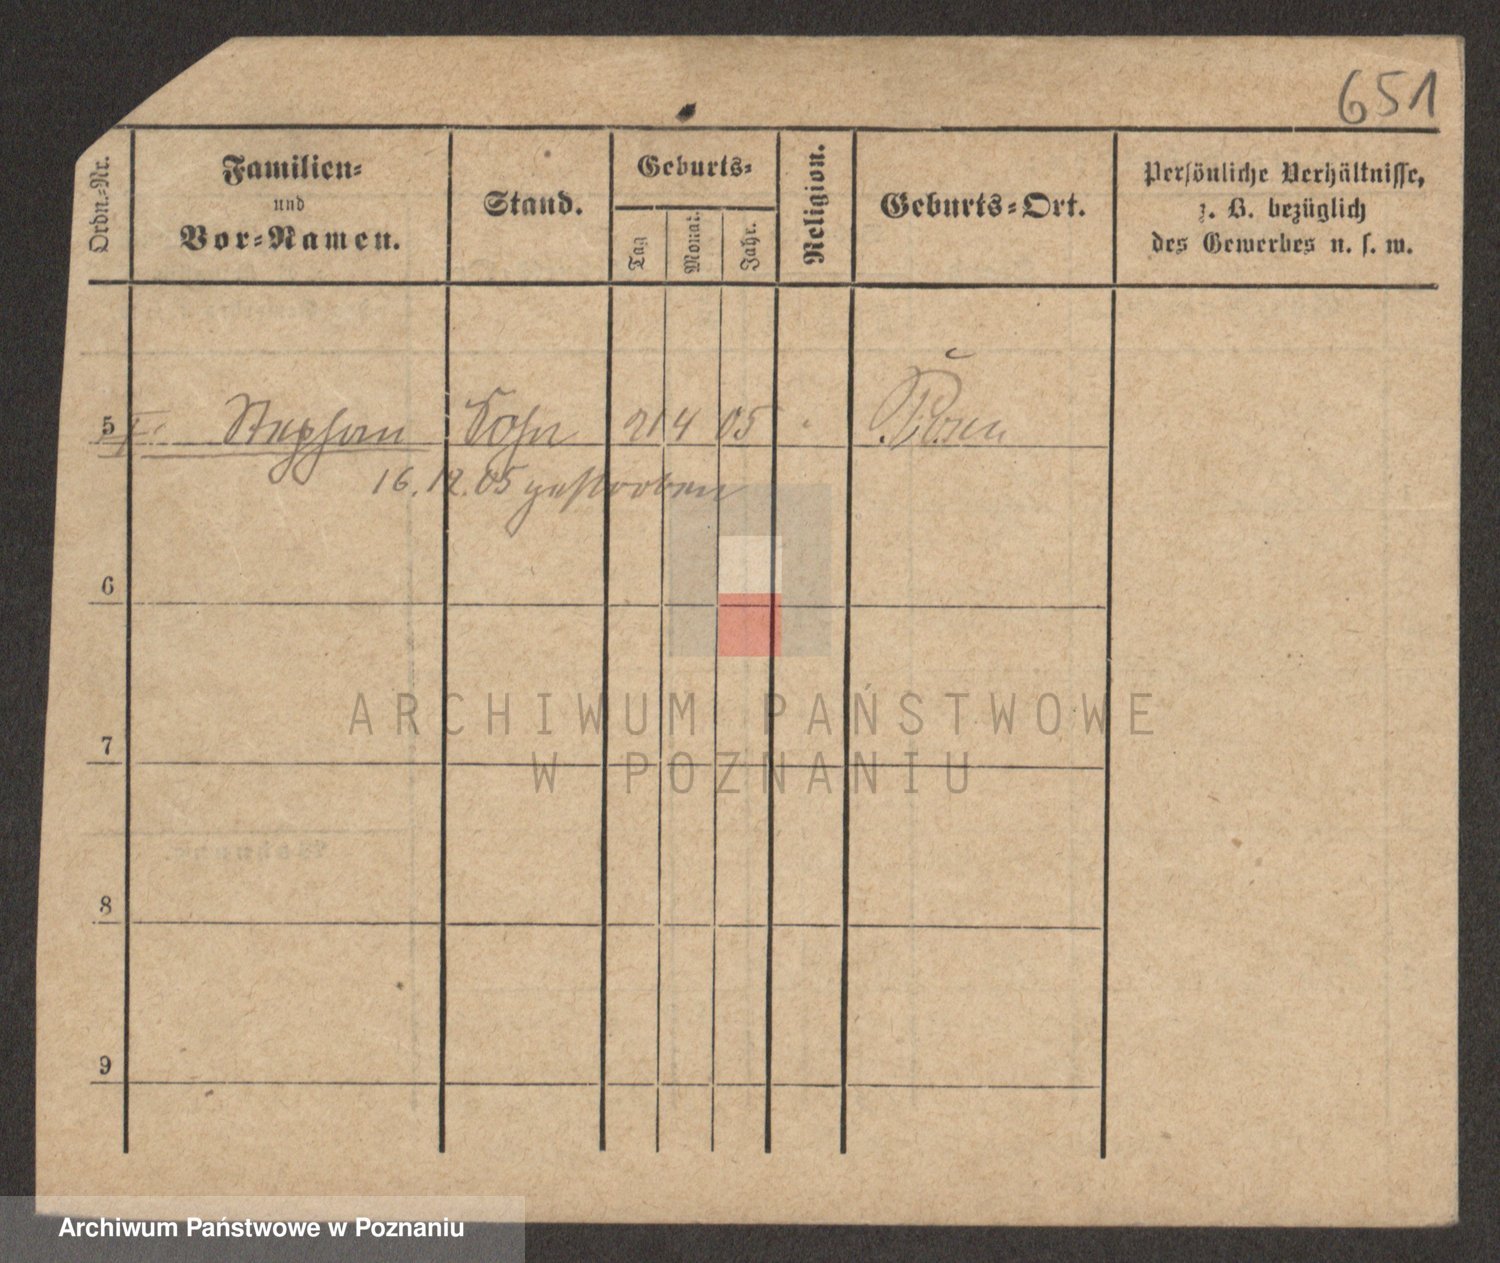 651
Ordn.=Nr.
Familien=
und
Vor=Namen.
Stand.
Geburts=
Tag
Monat.
Jahr.
Religion.
Geburts=Ort.
Persönliche Verhältnisse,
z. B. bezüglich
des Gewerbes u. s. w.
5 Stephan Sohn 21 4 05 Posen
16.12.05 gestorben
6
7
8
9
ARCHIWUM PAŃSTWOWE
W POZNANIU
Archiwum Państwowe w Poznaniu